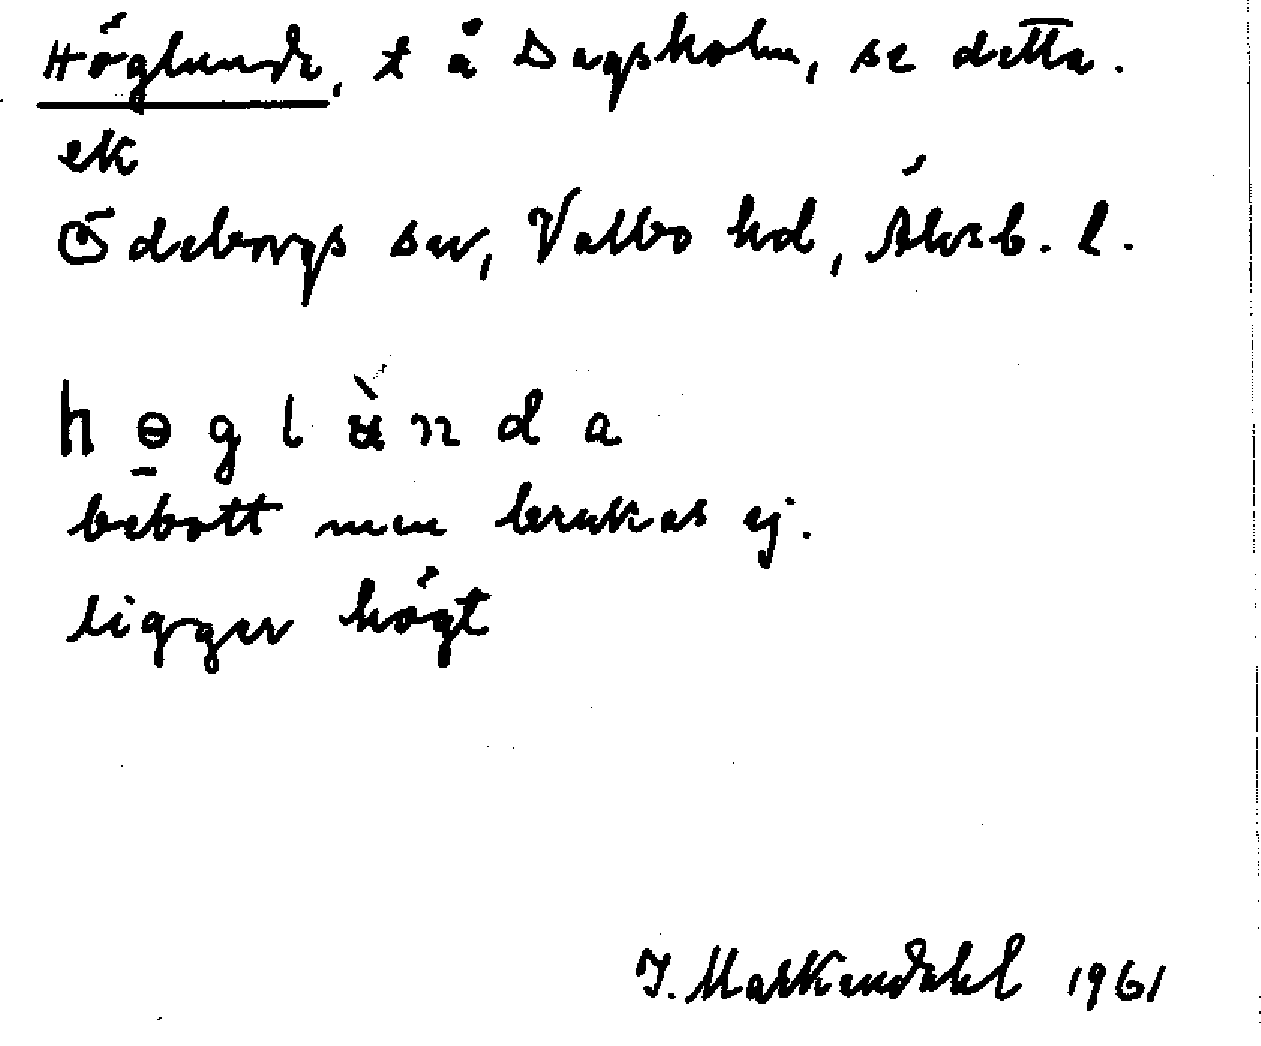 Höglunda, t å Dagsholm, se detta.
ek
Ödeborgs sn, Valbo hd, Älvsb. l.
h ө̱ g l ù n d a
bebott men brukas ej.
ligger högt
I. Markendahl 1961